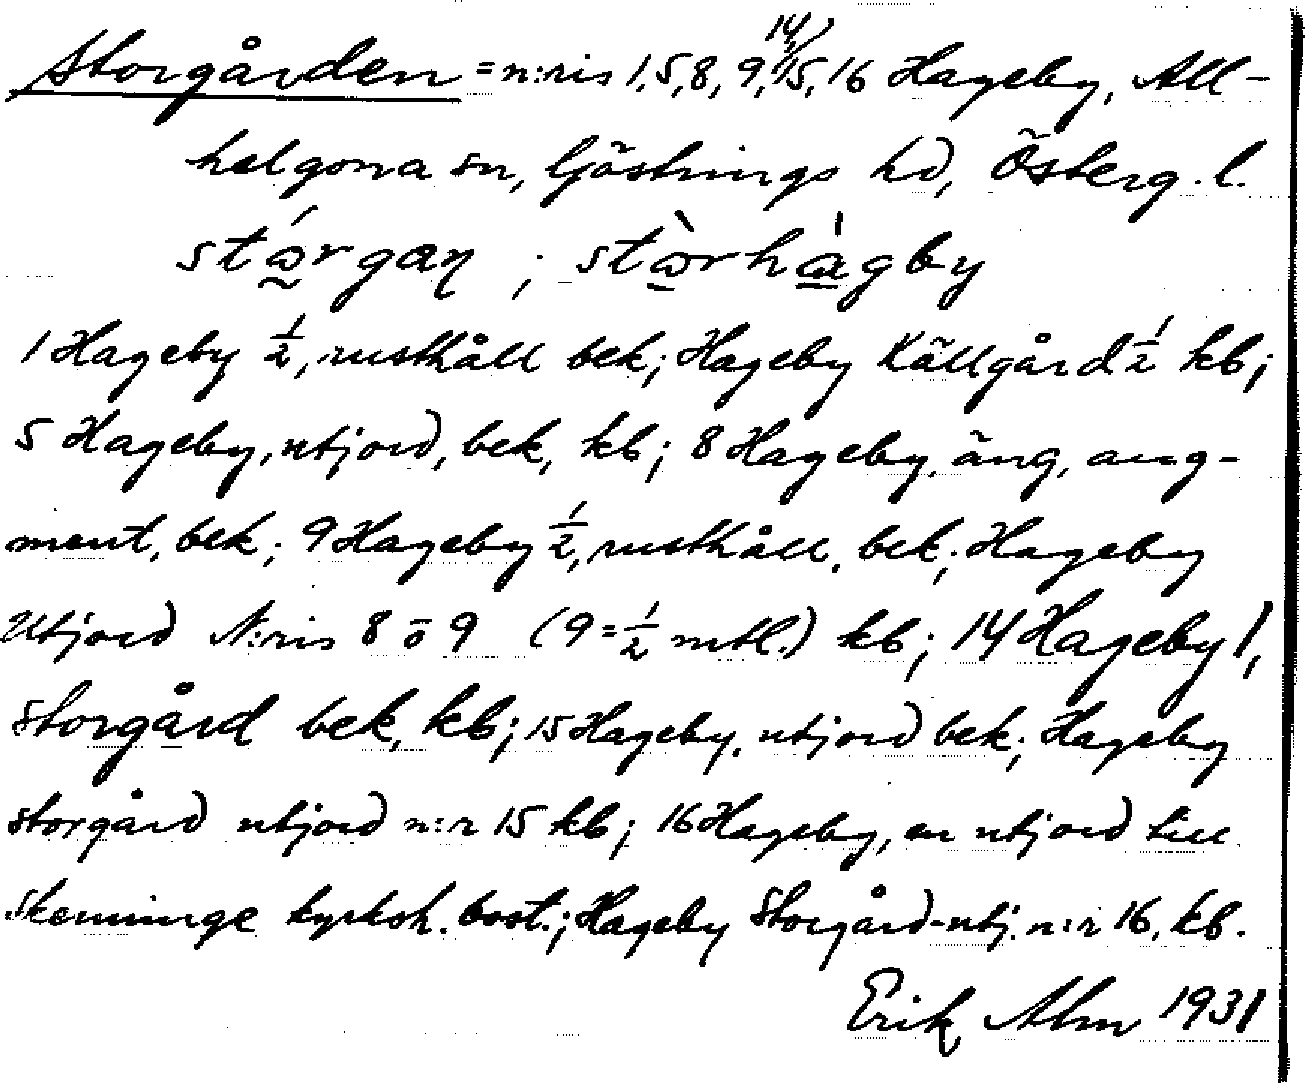 Storgården = n:ris 1, 5, 8, 9, 14, 15, 16 Hageby, All-
helgona sn, Göstrings hd, Österg. l.
1 Hageby ½, rusthåll bek; Hageby Källgård ½ kb;
5 Hageby, utjord, bek, kb; 8 Hageby, äng, aug-
ment, bek; 9 Hageby ½, rusthåll, bek; Hageby
Utjord N:ris 8 o 9 (9 = ½ mtl.) kb; 14 Hageby 1,
storgård bek, kb; 15 Hageby, utjord bek; Hageby
storgård utjord n:r 15 kb; 16 Hageby, en utjord till
skenninge kyrkoh. bost.; Hageby Storgård-utj. n:r 16, kb.
Erik Alm 1931